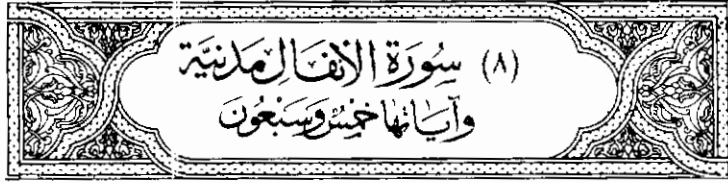 (٨) سُورَةُ الأَنفَالِ مَدَنِيَّة
وَآيَاتُهَا خَمْسٌ وَسَبْعُونَ